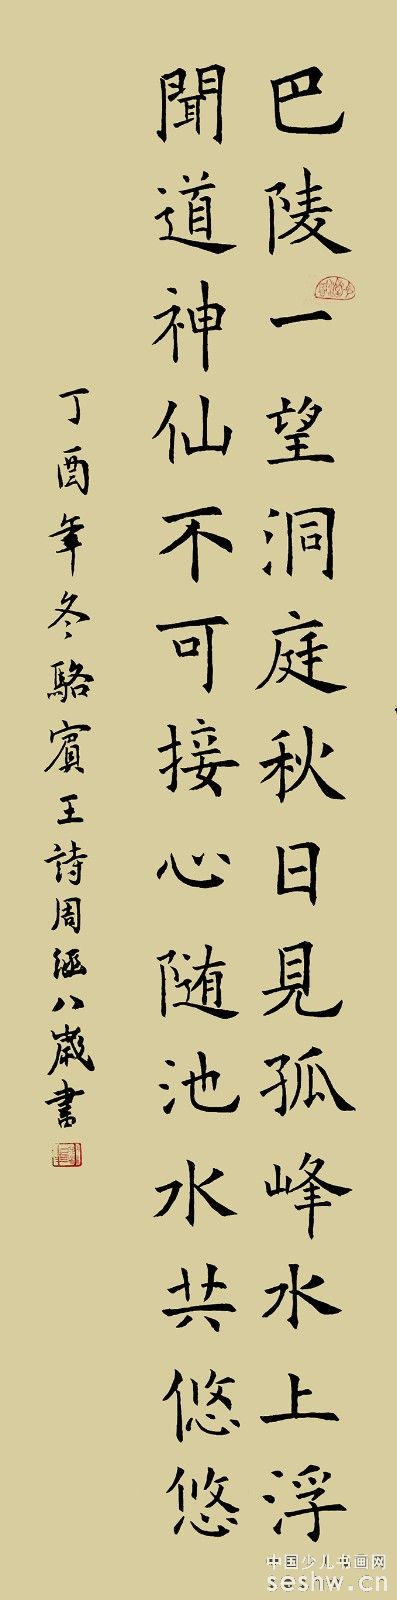 巴陵一望洞庭秋日見孤峰水上浮
聞道神仙不可接心随池水共悠悠
丁酉年冬駱賓王詩周涵八歲書
中国少儿书画网
seshw.cn